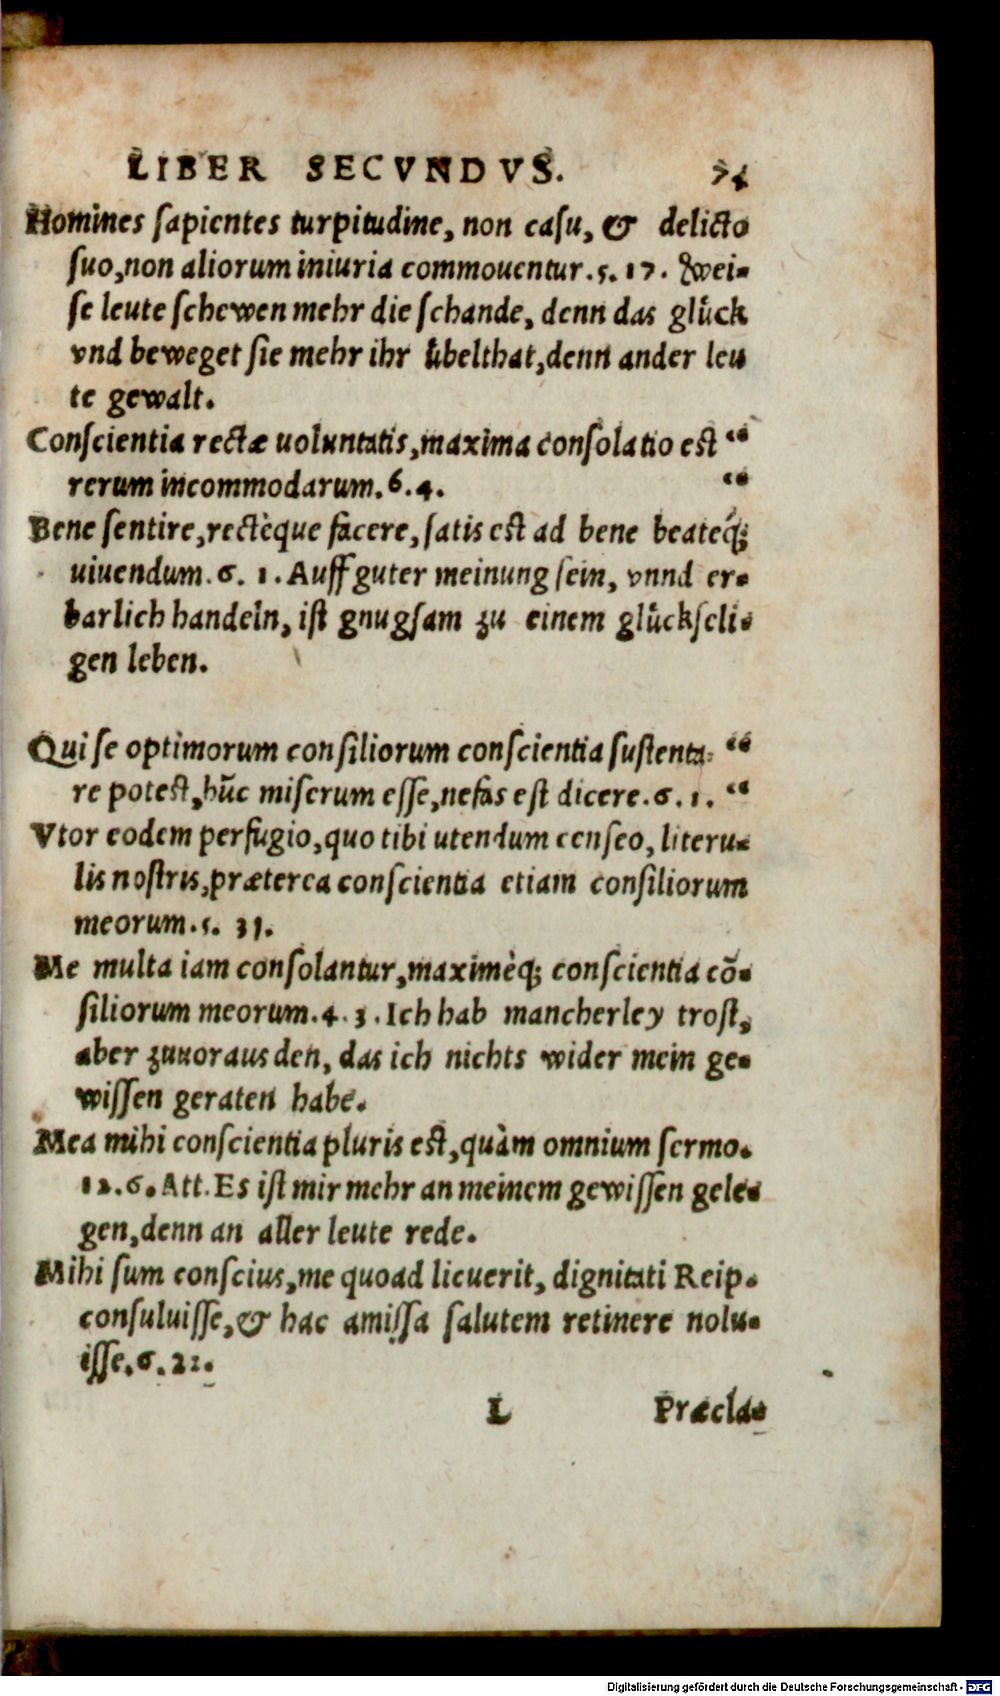 LIBER SECVNDVS. 74
Homines sapientes turpitudine, non casu, & delicto
suo, non aliorum iniuria commouentur. 5. 17. Wei-
se leute schewen mehr die schande, denn das glück
vnd beweget sie mehr ihr übelthat, denn ander leu
te gewalt.
Conscientia rectæ uoluntatis, maxima consolatio est “
rerum incommodarum. 6. 4. “
Bene sentire, rectèque facere, satis est ad bene beateq́;
uiuendum. 6. 1. Auff guter meinung sein, vnnd er-
barlich handeln, ist gnugsam zu einem glückseli-
gen leben.
Qui se optimorum consiliorum conscientia sustenta- “
re potest, hũc miserum esse, nefas est dicere. 6. 1. “
Vtor eodem perfugio, quo tibi utendum censeo, literu-
lis nostris, præterea conscientia etiam consiliorum
meorum. 5. 31.
Me multa iam consolantur, maximèq; conscientia cõ-
siliorum meorum. 4. 3. Ich hab mancherley trost,
aber zuuoraus den, das ich nichts wider mein ge-
wissen geraten habe.
Mea mihi conscientia pluris est, quàm omnium sermo.
12. 6. Att. Es ist mir mehr an meinem gewissen gele-
gen, denn an aller leute rede.
Mihi sum conscius, me quoad licuerit, dignitati Reip.
consuluisse, & hac amissa salutem retinere nolu-
isse. 6. 22.
L Præcla-
Digitalisierung gefördert durch die Deutsche Forschungsgemeinschaft - DFG